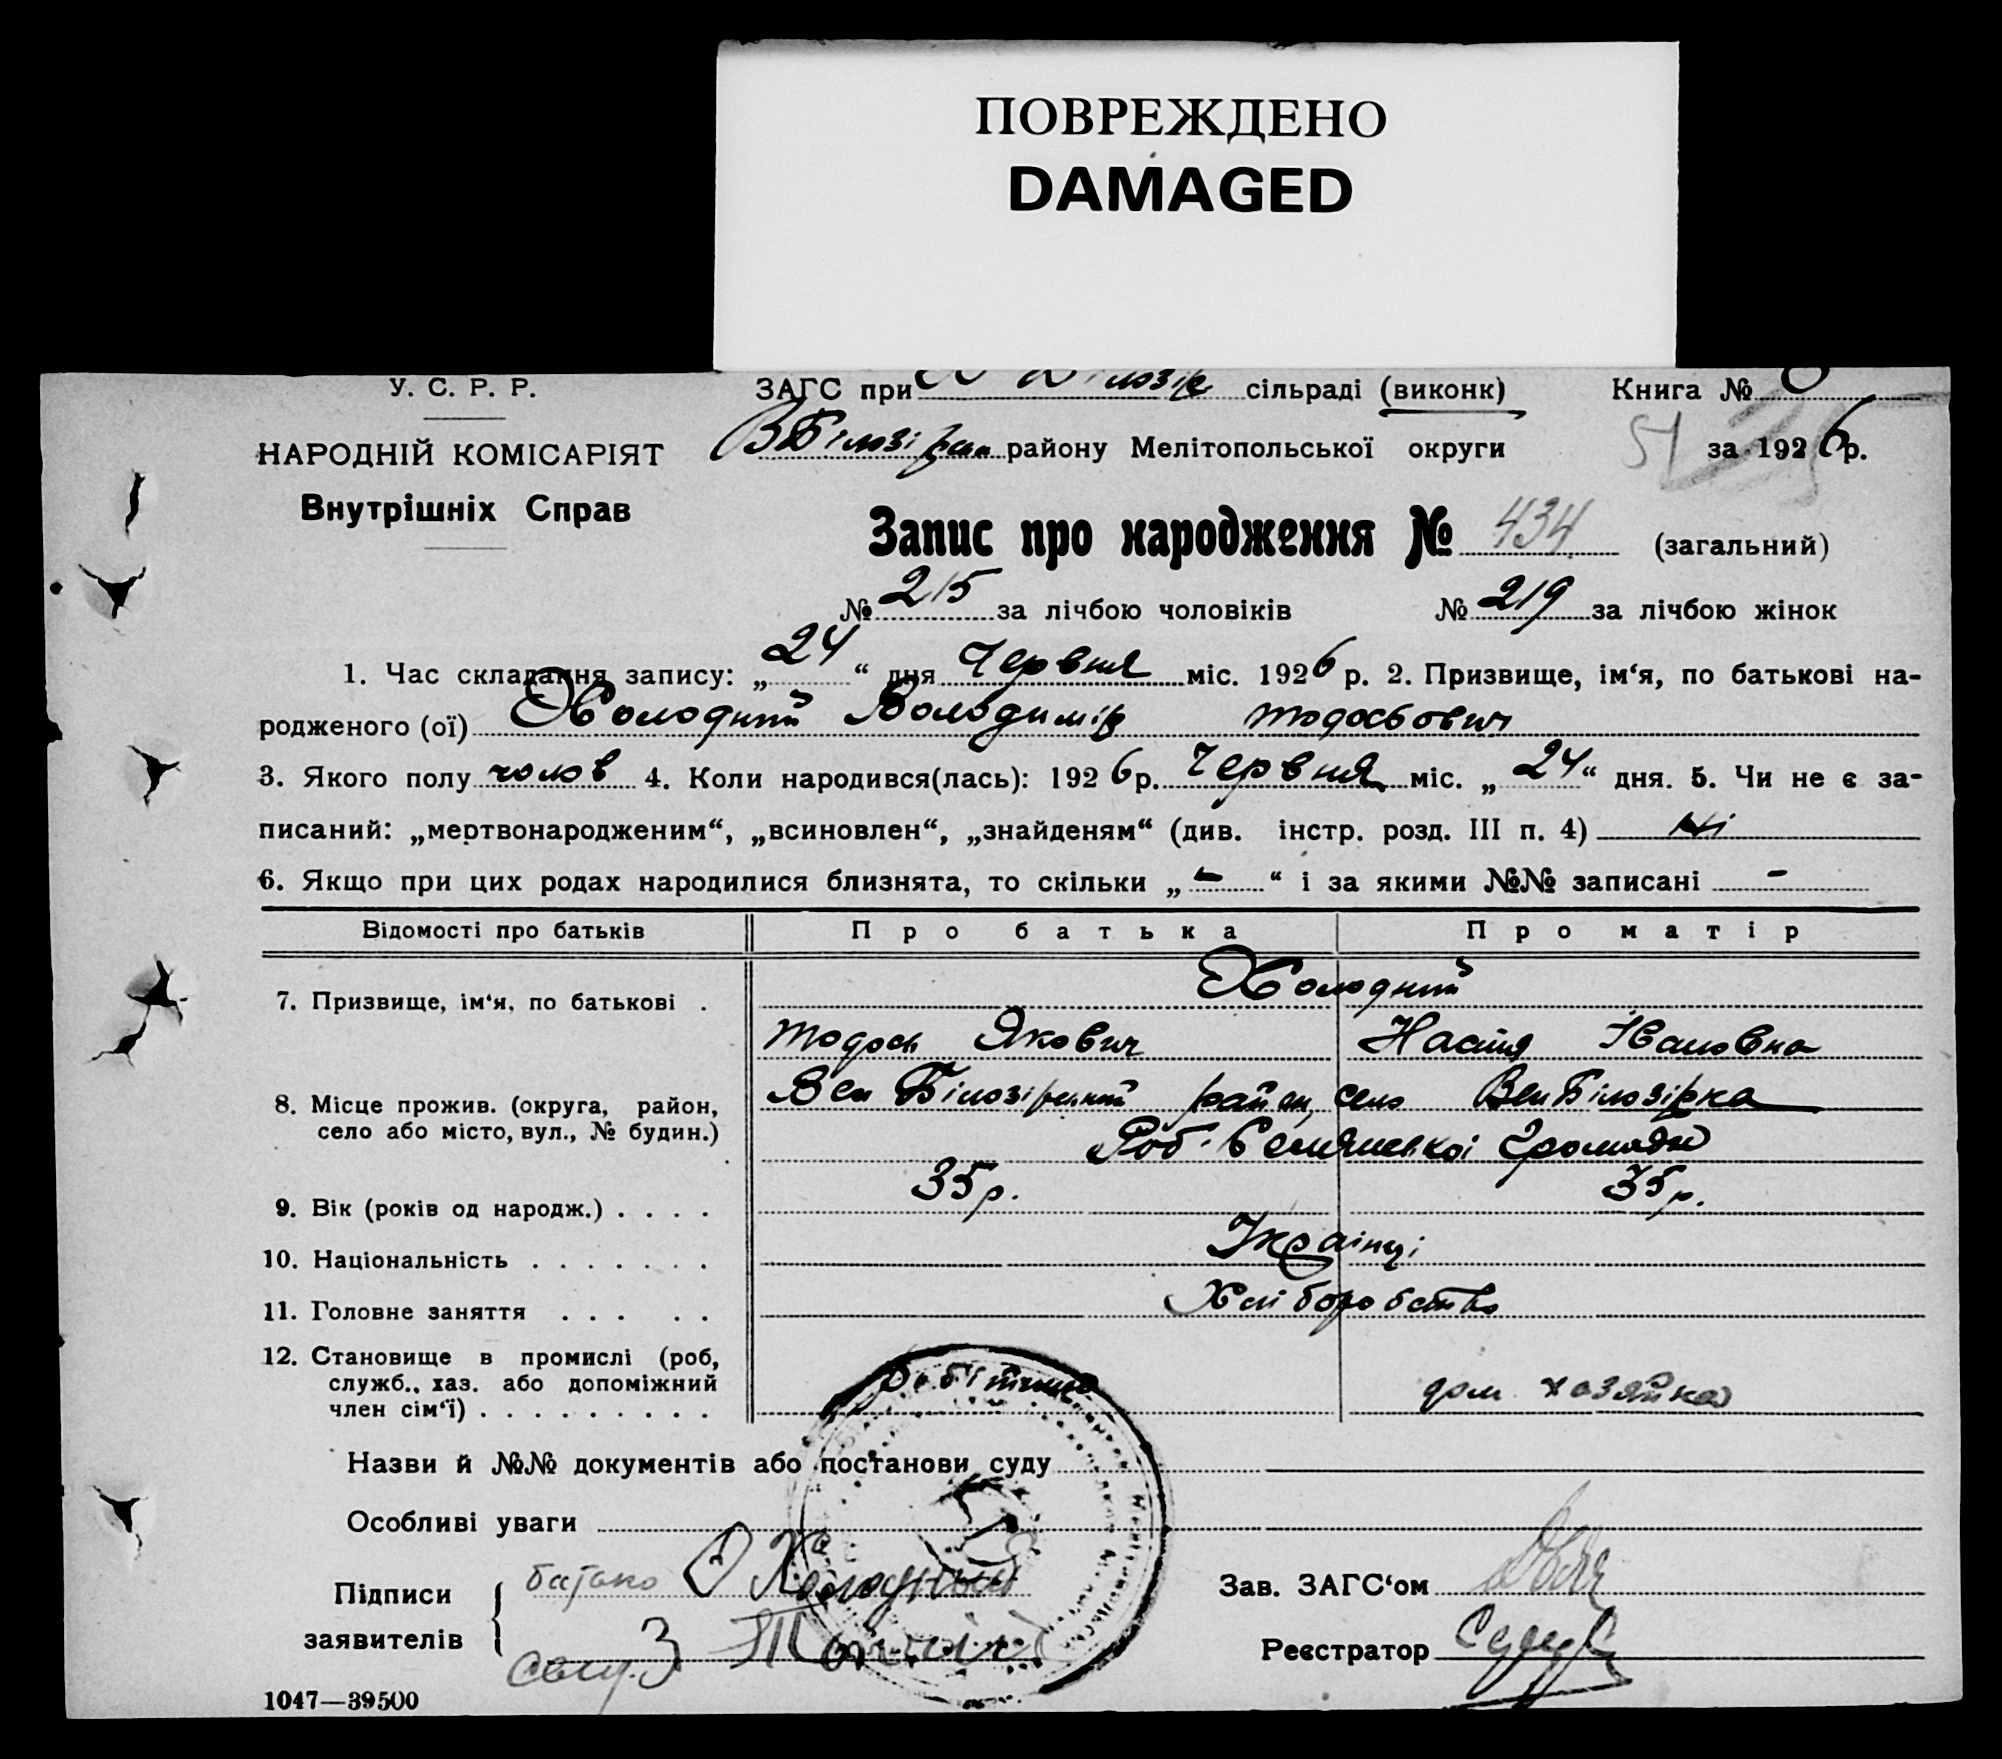 ПОВРЕЖДЕНО
DAMAGED
У. С. Р. Р. ЗАГС при Білозір сільраді (виконк) Книга №
НАРОДНІЙ КОМІСАРІЯТ В Білозірськ району Мелітопольської округи 51 за 1926 р.
Внутрішніх Справ
Запис про народження № 434 (загальний)
№ 215 за лічбою чоловіків № 219 за лічбою жінок
1. Час складання запису: „24“ дня Червня міс. 1926 р. 2. Призвище, ім‘я, по батькові на-
родженого (ої) Холодний Володимір Тодосьович
3. Якого полу чолов 4. Коли народився(лась): 1926 р. Червня міс. „24“ дня. 5. Чи не є за-
писаний: „мертвонародженим“, „всиновлен“, „знайденям“ (див. інстр. розд. III п. 4) Ні
6. Якщо при цих родах народилися близнята, то скільки „-“ і за якими №№ записані -
Відомості про батьків Про батька Про матір
7. Призвище, ім‘я, по батькові . Холодний
Тодось Якович Настя Івановна
8. Місце прожив. (округа, район, Вел Білозірський район, село Вел Білозірка
село або місто, вул., № будин.) Роб. Селянської Громади
9. Вік (років од народж.) . . . . 35 р. 35 р.
10. Національність . . . . . . . Українці
11. Головне заняття . . . . . Хліборобство
12. Становище в промислі (роб,
служб., хаз. або допоміжний
член сім‘ї) . . . . . . . . . дом хозяйка
Назви й №№ документів або постанови суду
Особливі уваги
Підписи батько Холодный Зав. ЗАГС‘ом
заявителів Реєстратор
1047—39500